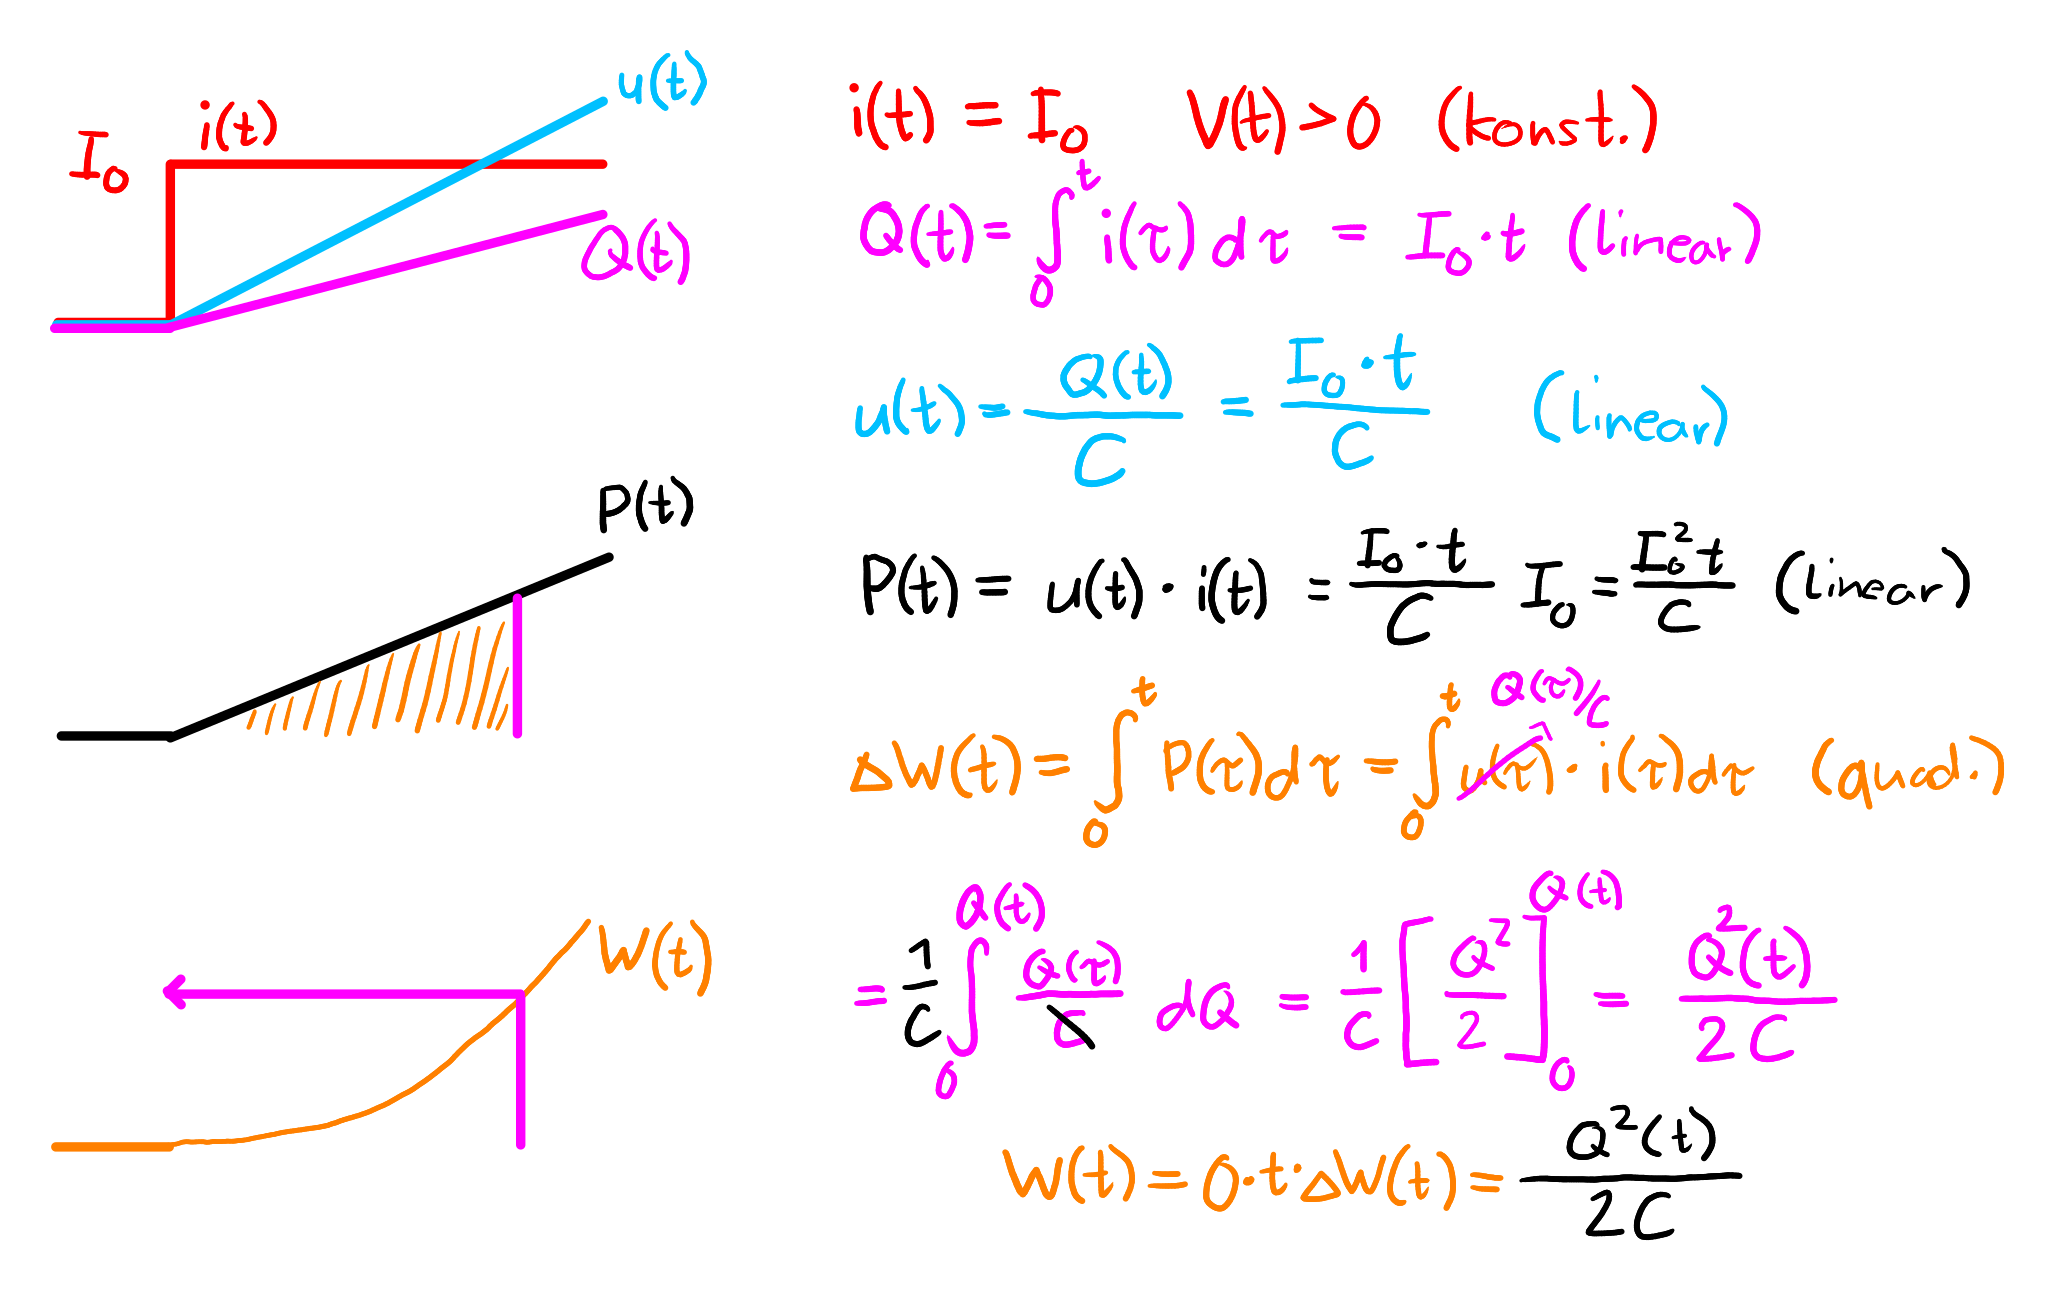 u(t)
I₀ i(t)
Q(t)
i(t) = I₀ V(t) > 0 (konst.)
Q(t) = ∫₀ᵗ i(τ) dτ = I₀ · t (linear)
u(t) = Q(t)/C = I₀ · t/C (linear)
P(t)
P(t) = u(t) · i(t) = I₀ · t/C I₀ = I₀² t/C (linear)
ΔW(t) = ∫₀ᵗ P(τ) dτ = ∫₀ᵗ u(τ) · i(τ) dτ (quad.)
Q(τ)/C
W(t)
= 1/C ∫₀^Q(t) Q(τ)/C dQ = 1/C [Q²/2]₀^Q(t) = Q²(t)/2C
W(t) = 0 · t · ΔW(t) = Q²(t)/2C